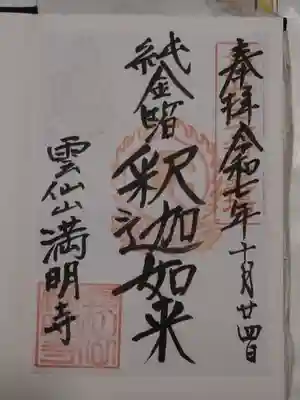 奉拝 令和七年十月廿四日
純金箔 釈迦如来
雲仙山満明寺